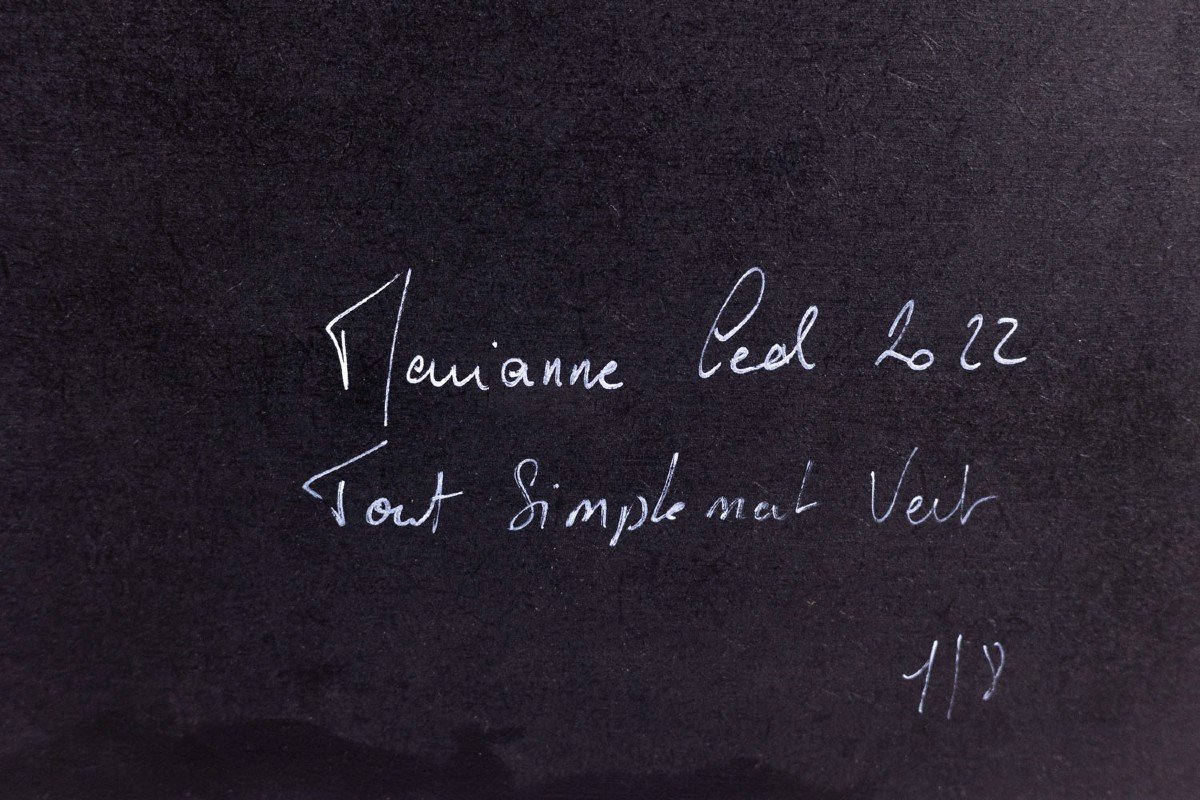 Marianne Ced 2022
Tout Simplement Vert
1/8